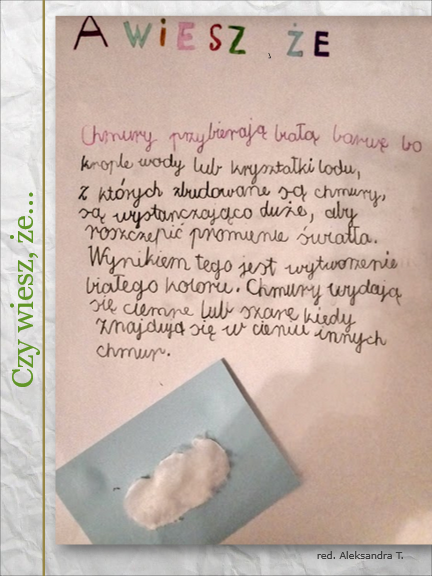 A WiESZ, ŻE
Chmury przybierają białą barwę bo
krople wody lub kryształki lodu,
z których zbudowane są chmury,
są wystarczająco duże, aby
roszczepić promienie światła.
Wynikiem tego jest wytworzenie
białego koloru. Chmury wydają
się ciemne lub szare kiedy
znajdują się w cieniu innych
chmur.
Czy wiesz, że...
red. Aleksandra T.